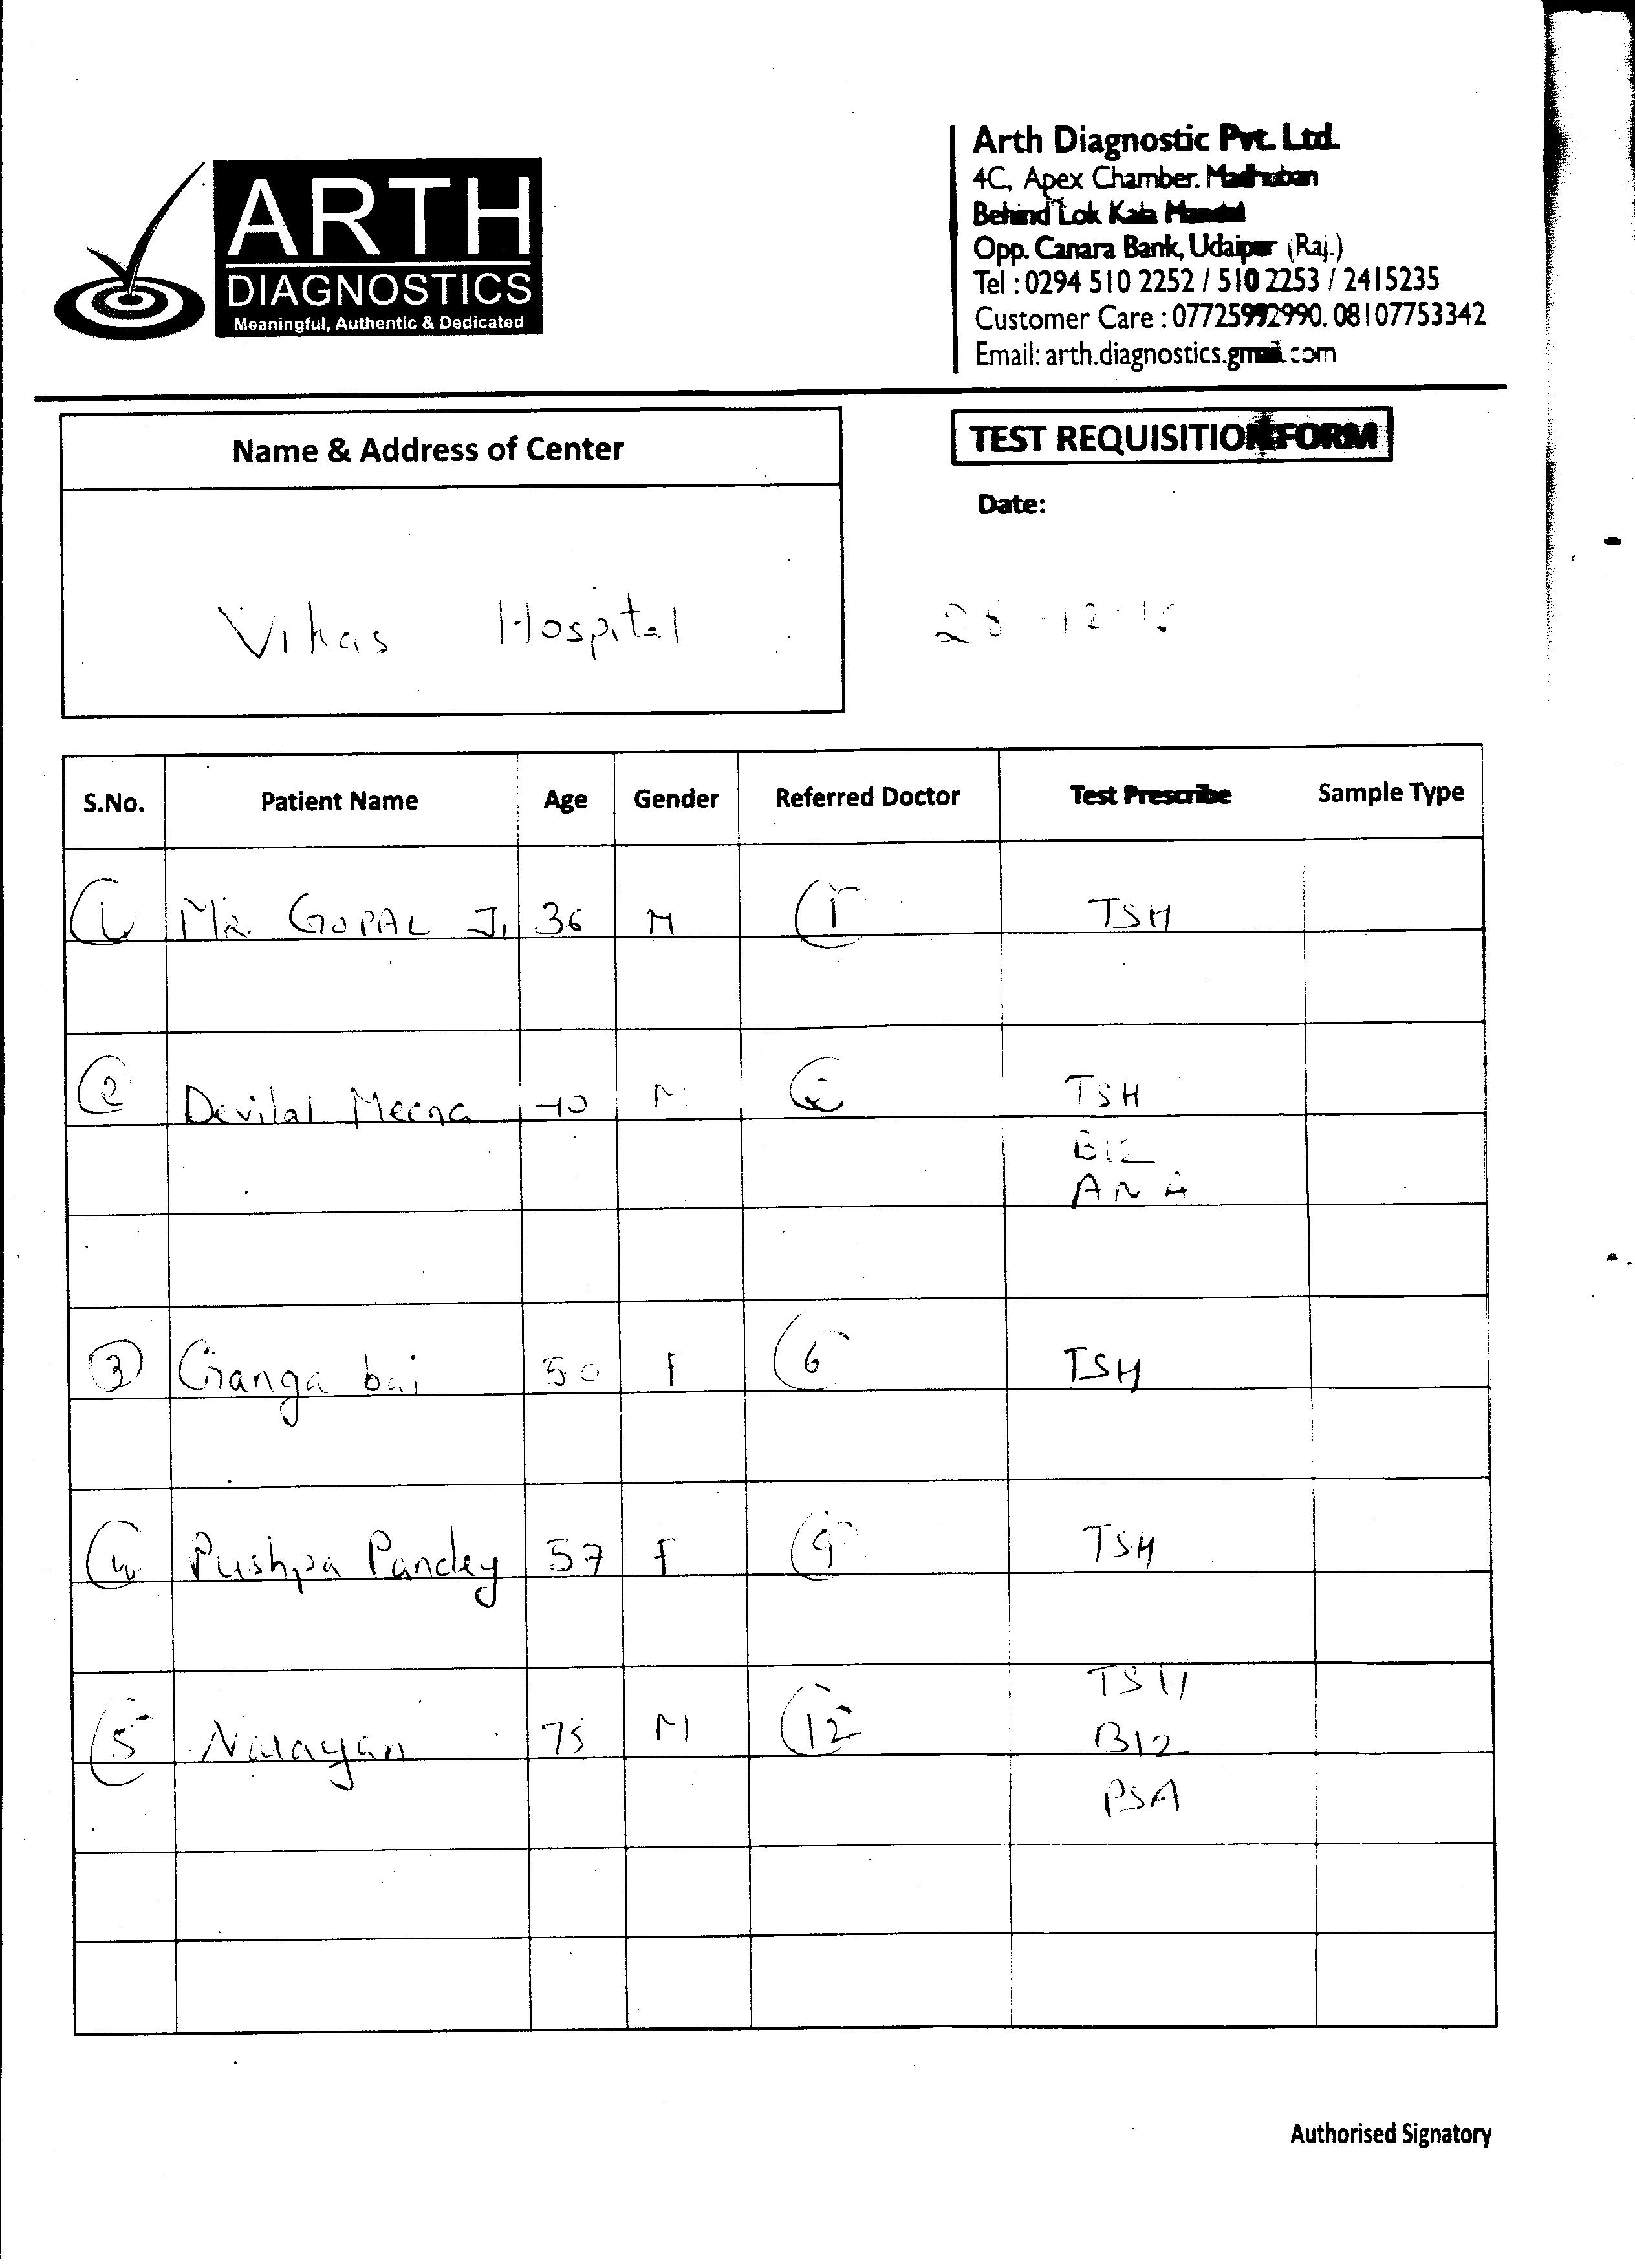 ARTH
DIAGNOSTICS
Meaningful, Authentic & Dedicated
Arth Diagnostic Pvt. Ltd.
4C, Apex Chamber. Madhuban
Behind Lok Kala Mandal
Opp. Canara Bank, Udaipur (Raj.)
Tel : 0294 510 2252 / 510 2253 / 2415235
Customer Care : 07725992990. 08107753342
Email: arth.diagnostics.gmail.com
Name & Address of Center
TEST REQUISITION FORM
Date:
Vikas Hospital
S.No. Patient Name Age Gender Referred Doctor Test Prescribe Sample Type
1 MR. GOPAL JI 36 M 1 TSH
2 Devilal Meena M 2 TSH
B12
ANA
3 Ganga bai 50 F 6 TSH
4 Pushpa Pandey 57 F 9 TSH
TSH
5 Narayan 75 M 12 B12
PSA
Authorised Signatory